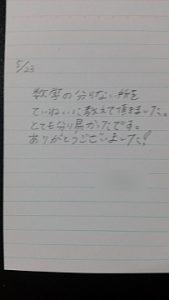 5/23
数学の分らない所を
ていねいに教えて頂きました。
とても分り易かったです。
ありがとうございました!